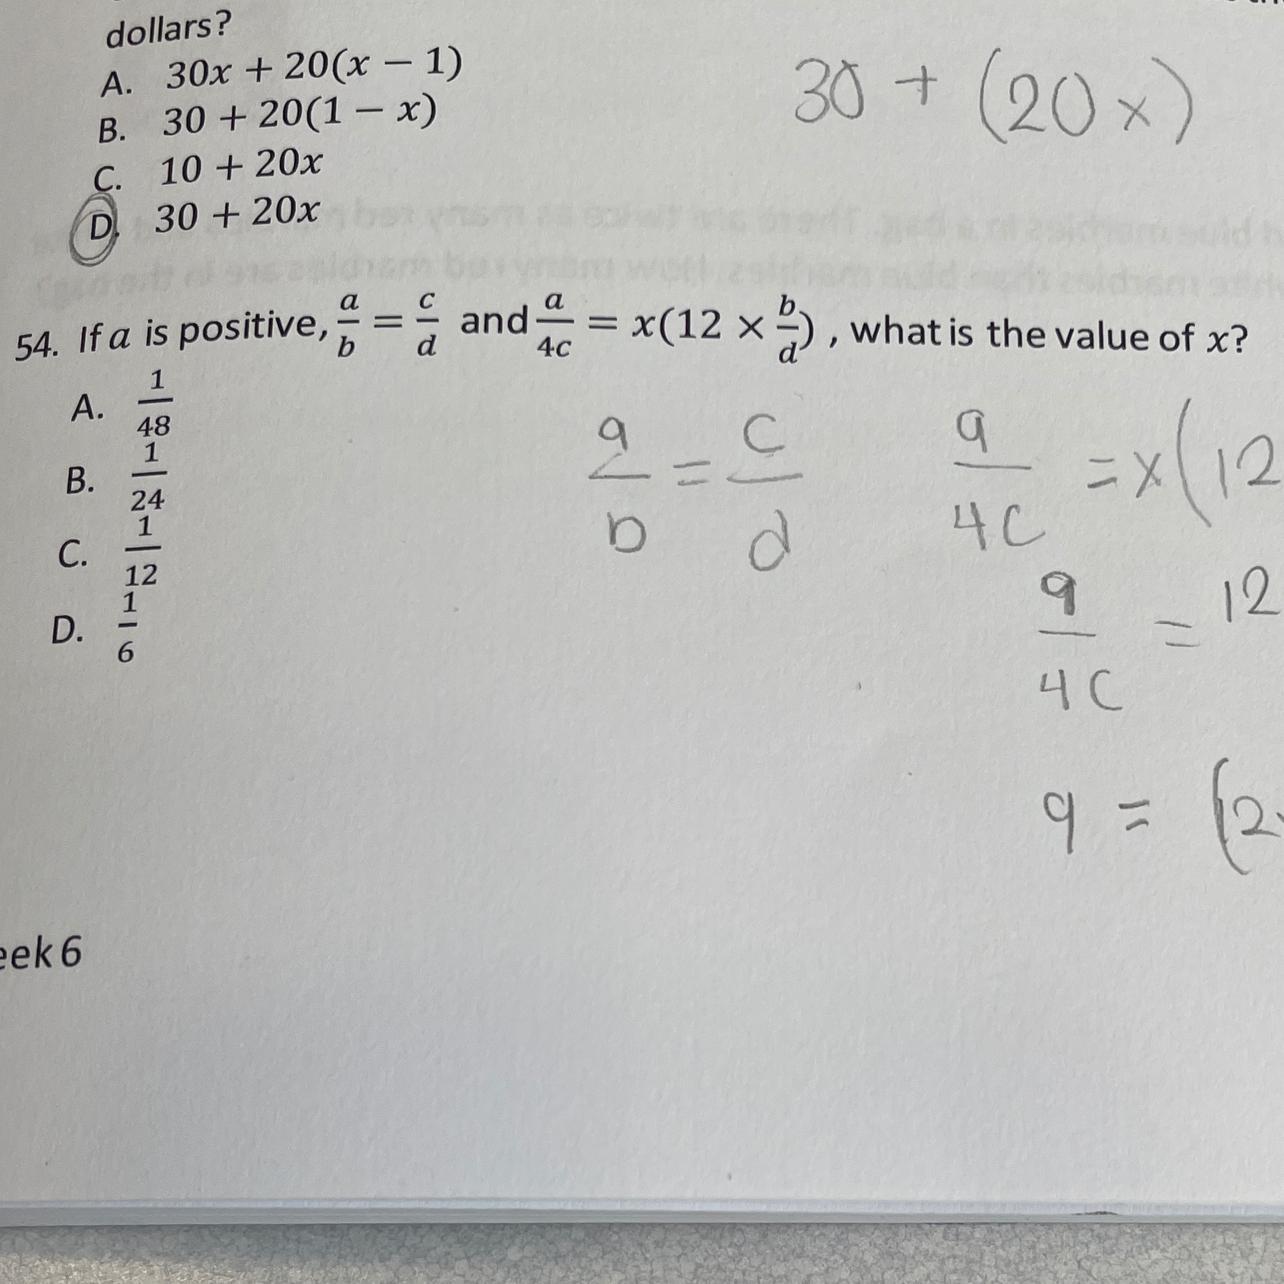 dollars?
A. 30x + 20(x − 1)
B. 30 + 20(1 − x)
C. 10 + 20x
D. 30 + 20x
30 + (20x)
54. If a is positive, a/b = c/d and a/4c = x(12 × b/d) , what is the value of x?
A. 1/48
B. 1/24
C. 1/12
D. 1/6
a/b = c/d
a/4c = x(12
a/4c = 12
a =
eek 6